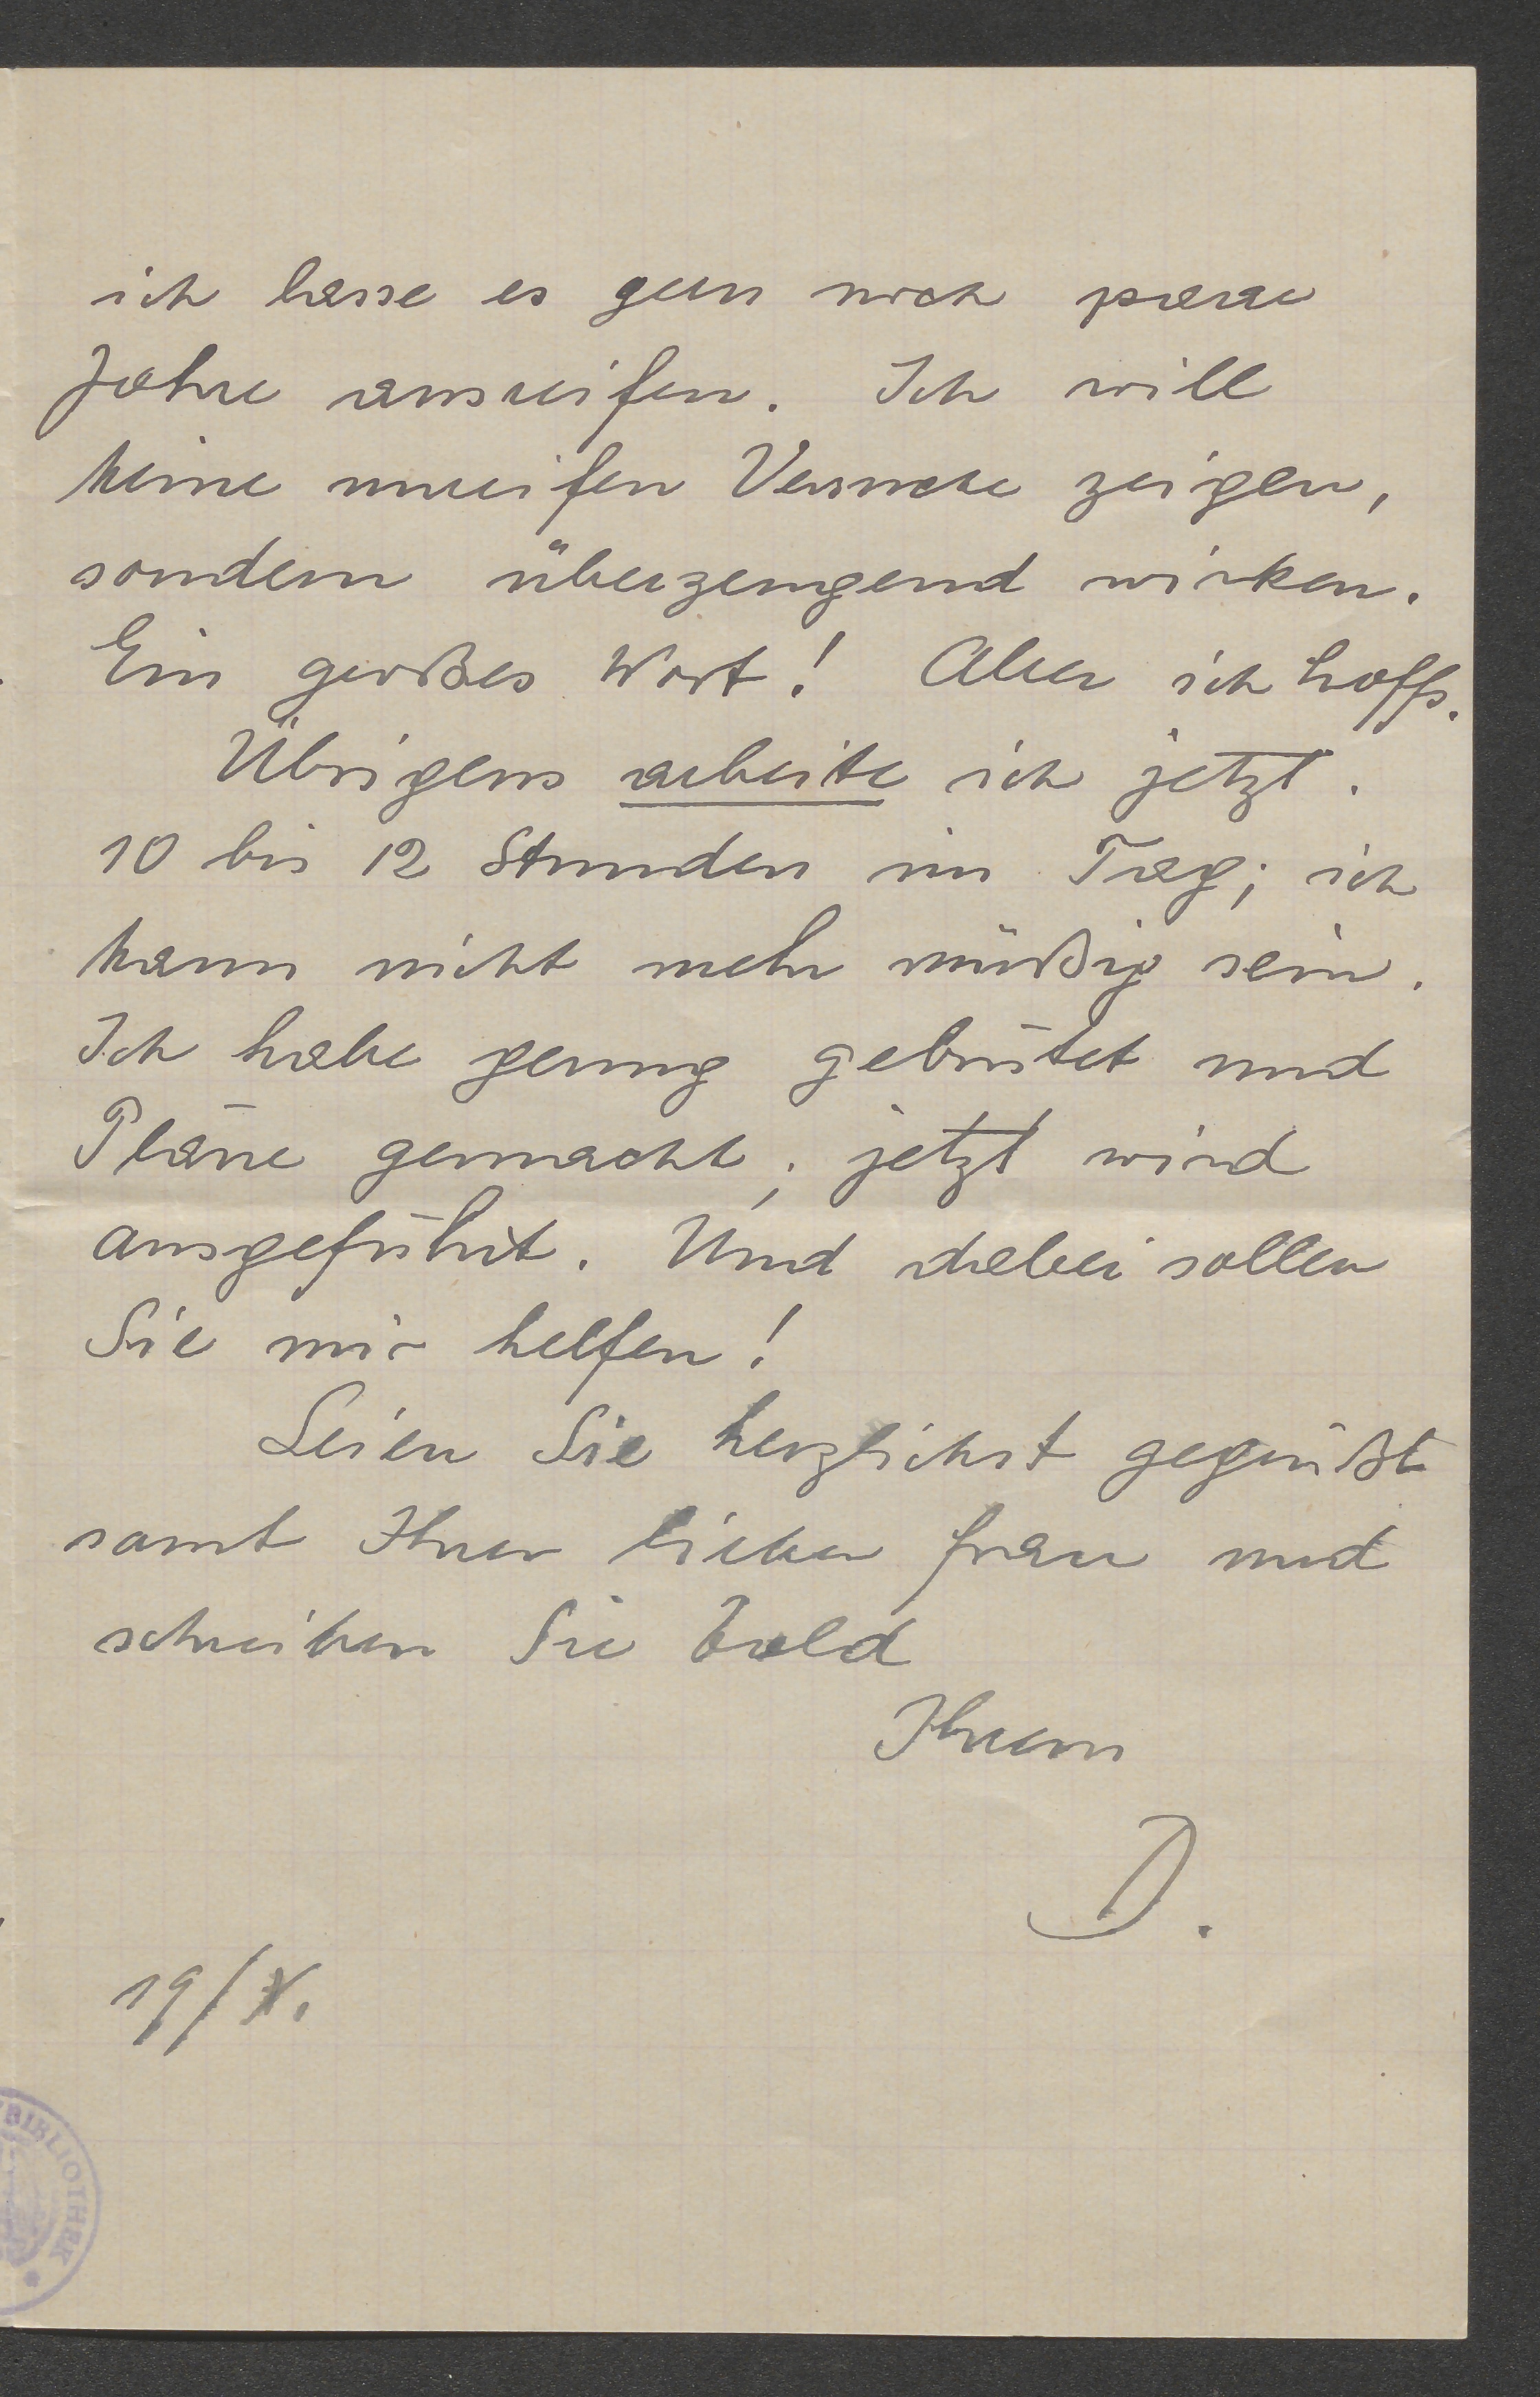 ich lasse es gern noch paar
Jahre ausreifen. Ich will
keine unreifen Versuche zeigen,
sondern überzeugend wirken.
Ein großes Wort! Aber ich hoffs.
Übrigens arbeite ich jetzt.
10 bis 12 Stunden im Tag; ich
kann nicht mehr müßig sein.
Ich habe genug gebrütet und
Pläne gemacht; jetzt wird
ausgeführt. Und dabei sollen
Sie mir helfen!
Seien Sie herzlichst gegrüßt
samt Ihrer lieben Frau und
schreiben Sie bald
Ihrem
D.
19/X.
BIBLIOTHEK